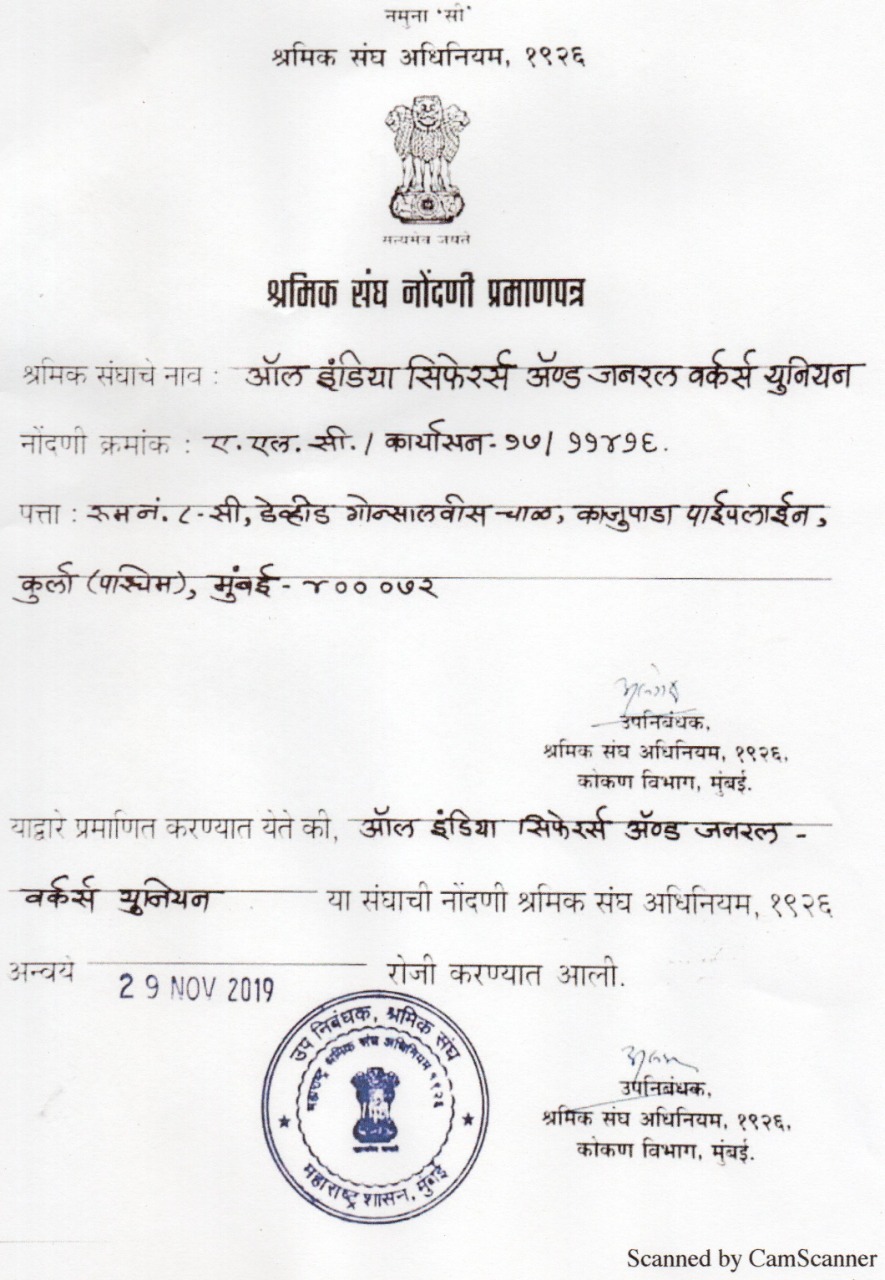 नमुना 'सी'
श्रमिक संघ अधिनियम, १९२६
सत्यमेव जयते
श्रमिक संघ नोंदणी प्रमाणपत्र
श्रमिक संघाचे नाव : ऑल इंडिया सिफेरर्स ॲण्ड जनरल वर्कर्स युनियन
नोंदणी क्रमांक : ए. एल. सी. / कार्यासन- १७/ ११४१६.
पत्ता : रुम नं. ८- सी, डेव्हीड गोन्सालवीस चाळ, काजुपाडा पाईपलाईन,
कुर्ला (पाश्चिम), मुंबई - ४०० ०७२
उपनिबंधक,
श्रमिक संघ अधिनियम, १९२६,
कोकण विभाग, मुंबई.
याद्वारे प्रमाणित करण्यात येते की, ऑल इंडिया सिफेरर्स ॲण्ड जनरल -
वर्कर्स युनियन या संघाची नोंदणी श्रमिक संघ अधिनियम, १९२६
अन्वये 29 NOV 2019 रोजी करण्यात आली.
उप निबंधक, श्रमिक संघ
महाराष्ट्र श्रमिक संघ अधिनियम १९२६
महाराष्ट्र शासन, मुंबई
उपनिबंधक,
श्रमिक संघ अधिनियम, १९२६,
कोकण विभाग, मुंबई.
Scanned by CamScanner